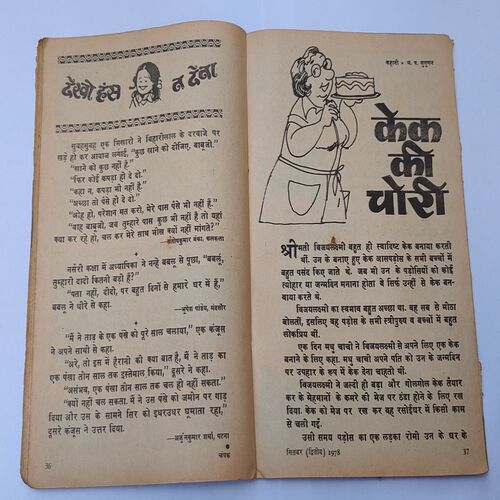 देखो हंस न देना
सुबहसुबह एक भिखारी ने बिहारीलाल के दरवाजे पर
खड़े हो कर आवाज लगाई, "कुछ खाने को दीजिए, बाबूजी."
"खाने को कुछ नहीं है."
"फिर कोई कपड़ा ही दे दो."
"कहा न, कपड़ा भी नहीं है."
"अच्छा तो पैसे ही दे दो."
"ओह हो, परेशान मत करो, मेरे पास पैसे भी नहीं हैं."
"वाह बाबूजी, जब तुम्हारे पास कुछ भी नहीं है तो यहां
क्या कर रहे हो, चल कर मेरे साथ भीख क्यों नहीं मांगते?"
कलकत्ता
नर्सरी कक्षा में अध्यापिका ने नन्हे बबलू से पूछा, "बबलू,
तुम्हारी दादी कितनी बड़ी हैं?"
"पता नहीं, दीदी, पर बहुत दिनों से हमारे घर में हैं,"
बबलू ने धीरे से कहा.
—भूपेश पांडेय, मंदसौर
"मैं ने ताड़ के एक पंखे को पूरे साल चलाया," एक कंजूस
ने अपने साथी से कहा.
"अरे, तो इस में हैरानी की क्या बात है, मैं ने ताड़ का
एक पंखा तीन साल तक इस्तेमाल किया," दूसरे ने कहा.
"असंभव, एक पंखा तीन साल तक चल ही नहीं सकता."
"क्यों नहीं चल सकता. मैं ने उस पंखे को जमीन पर गाड़
दिया और उस के सामने सिर को इधरउधर घुमाता रहा,"
दूसरे कंजूस ने उत्तर दिया.
—अर्जुनकुमार शर्मा, पटना
36
चंपक
कहानी •
केक
की
चोरी
श्रीमती विजयलक्ष्मी बहुत ही स्वादिष्ट केक बनाया करती
थीं. उन के बनाए हुए केक आसपड़ोस के सभी बच्चों में
बहुत पसंद किए जाते थे. जब भी उन के पड़ोसियों को कोई
त्योहार या जन्मदिन मनाना होता वे सिर्फ उन्हीं से केक बन-
वाया करते थे.
विजयलक्ष्मी का स्वभाव बहुत अच्छा था. वह सब से मीठा
बोलतीं, इसलिए वह पड़ोस के सभी स्त्रीपुरुष व बच्चों में बहुत
लोकप्रिय थीं.
एक दिन मधु चाची ने विजयलक्ष्मी से अपने लिए एक केक
बनाने के लिए कहा. मधु चाची अपने पति को उन के जन्मदिन
पर उपहार के रूप में केक देना चाहती थीं.
विजयलक्ष्मी ने जल्दी ही बड़ा और गोलमोल केक तैयार
कर के मेहमानों के कमरे की मेज पर ठंडा होने के लिए रख
दिया. केक को मेज पर रख कर वह रसोईघर में किसी काम
से चली गईं.
उसी समय पड़ोस का एक लड़का रोमी उन के घर के
सितंबर (द्वितीय) 1978
37